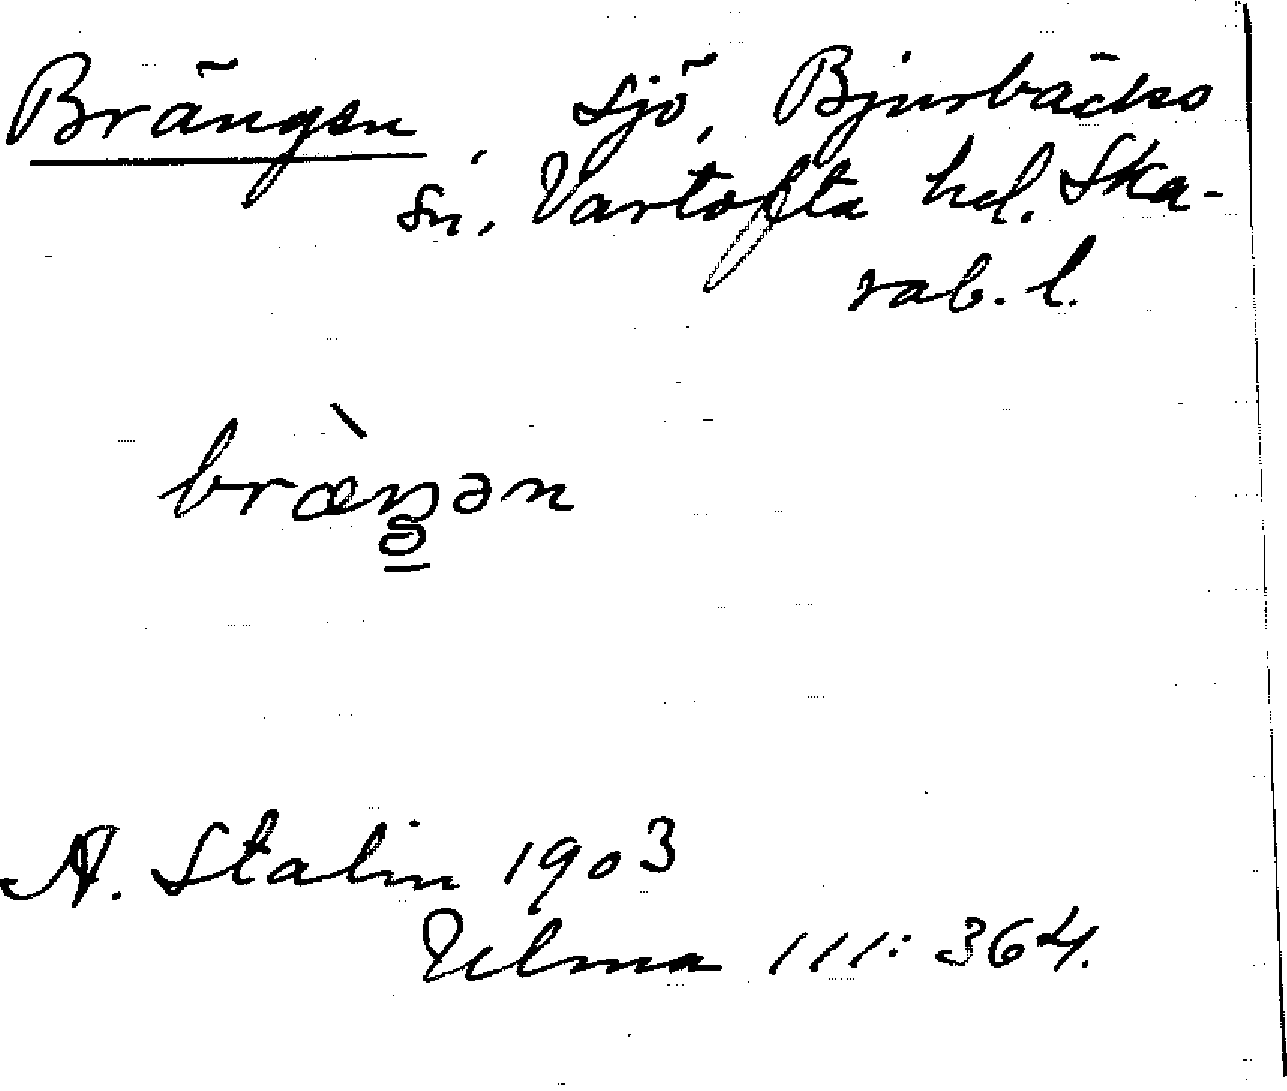 Brängen, sjö, Bjurbäcks
sn, Vartofta hd. Ska-
rab. l.
A. Stalin 1903
Ulma 111:364.